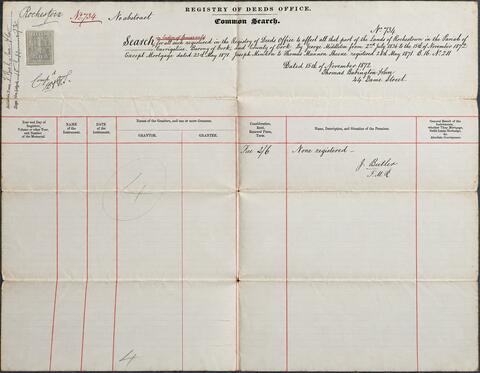 REGISTRY OF DEEDS OFFICE.
Common Search.
Rochestown No. 734 No abstract
No. 734
Search for all acts registered in the Registry of Deeds Office to affect all that part of the Lands of Rochestown in the Parish of
Carrigaline, Barony of Cork, and County of Cork. By George Middleton from 2nd July 1836 to the 15th of November 1872.
Except Mortgage dated 23rd May 1871, Joseph to Thomas registered 24th May 1871. B. 16. N. 211
Dated 15th of November 1872.
Thomas Babington
44 Dame Street.
Year and Day of
Registry,
Volume or other Year,
and Number
of the Memorial.
NAME
of the
Instrument.
DATE
of the
Instrument.
Names of the Grantors, and one or more Grantees.
GRANTOR.
GRANTEE.
Consideration,
Rent,
Renewal Fines,
Term.
Name, Description, and Situation of the Premises.
General Result of the
Instrument,
whether Fine, Mortgage,
Noble Leases Mortgage,
or
Absolute Conveyance.
Fee 2/6 None registered
J. Butler
4
4